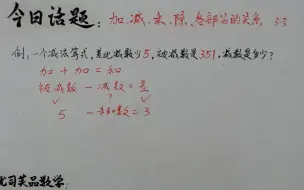 今日话题：加、减、乘、除、各部分的关系 33
例：一个减法算式，差比减数少5，被减数是351，减数是多少？
加 + 加 = 和
被减数 - 减数 = 差
✓ ? ✓
5 - 未知数 = 3
优司芙品数学